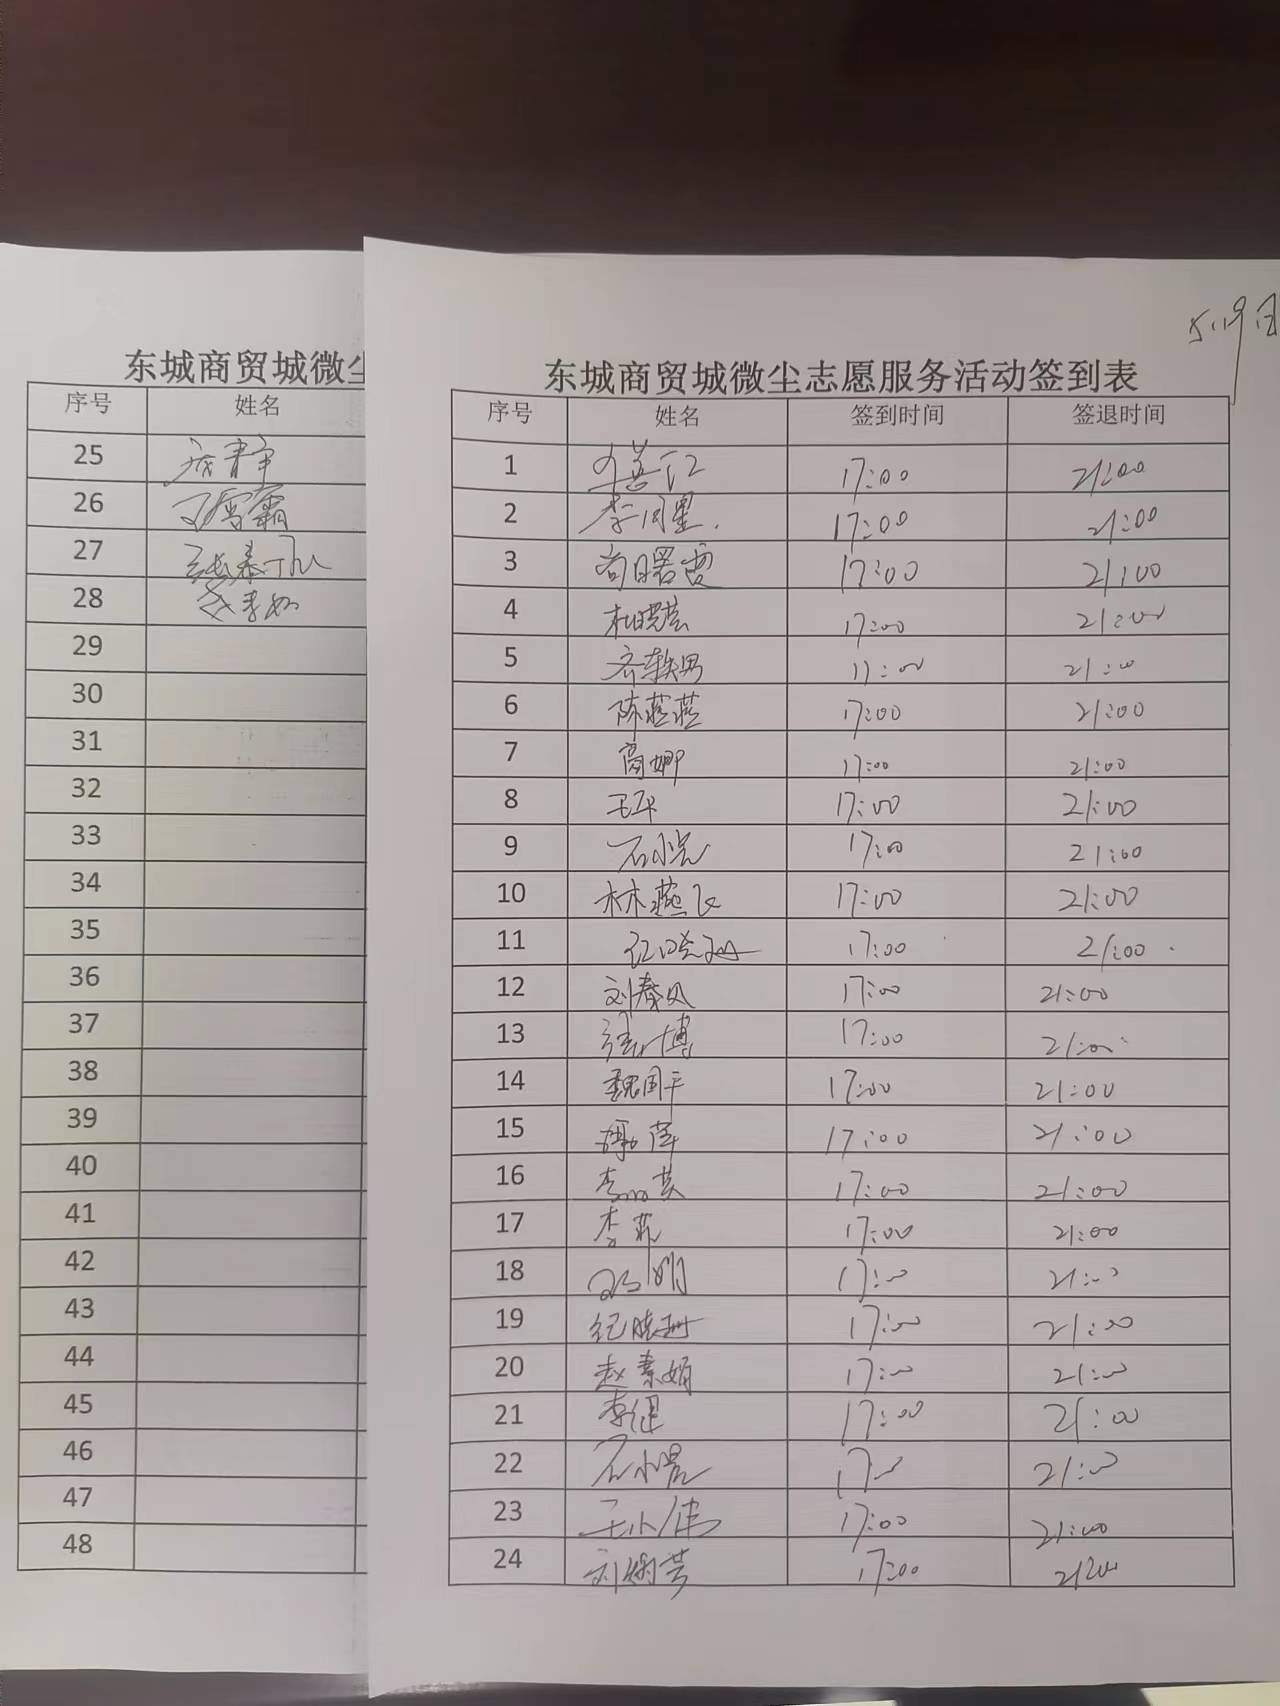 东城商贸城微尘
序号 姓名
25
26 王雪霜
27
28
29
30
31
32
33
34
35
36
37
38
39
40
41
42
43
44
45
46
47
48
东城商贸城微尘志愿服务活动签到表
序号 姓名 签到时间 签退时间
1 17:00 21:00
2 17:00 21:00
3 尚曙霞 17:00 21:00
4 杜晓芸 17:00 21:00
5 齐轶男 17:00 21:00
6 陈莲莲 17:00 21:00
7 商娜 17:00 21:00
8 王平 17:00 21:00
9 石小亮 17:00 21:00
10 林燕飞 17:00 21:00
11 17:00 21:00
12 刘春贝 17:00 21:00
13 17:00 21:00
14 魏国平 17:00 21:00
15 17:00 21:00
16 17:00 21:00
17 李菲 17:00 21:00
18 17:00 21:00
19 纪晓珊 17:00 21:00
20 赵素娟 17:00 21:00
21 李健 17:00 21:00
22 石小君 17:00 21:00
23 王小伟 17:00 21:00
24 刘娴芸 17:00 21:00